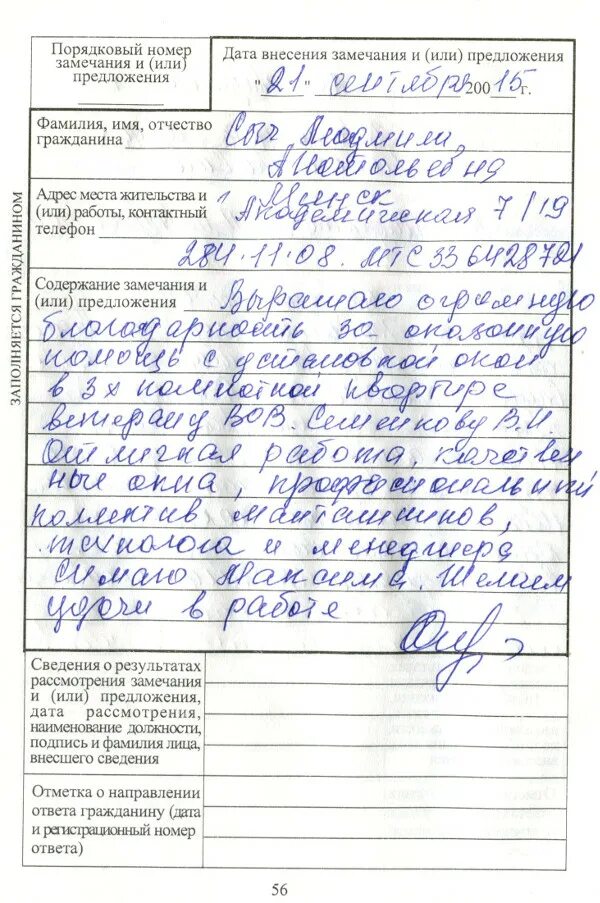 Порядковый номер
замечания и (или)
предложения
Дата внесения замечания и (или) предложения
"21" сентября 20015 г.
ЗАПОЛНЯЕТСЯ ГРАЖДАНИНОМ
Фамилия, имя, отчество
гражданина Сыч Людмила
Анатольевна
Адрес места жительства и
(или) работы, контактный
телефон
г Минск
Академическая 7/19
284.11.08. МТС 33 6428721
Содержание замечания и
(или) предложения Выражаю огромную
благодарность за оказанную
помощь с установкой окон
в 3х комнатной квартире
ветерану ВОВ. Семенкову В.И.
Отличная работа, качествен
ные окна, професиональный
коллектив монташников,
технолога и менеджера
Симаго Максима. Желаем
удачи в работе
Сведения о результатах
рассмотрения замечания
и (или) предложения,
дата рассмотрения,
наименование должности,
подпись и фамилия лица,
внесшего сведения
Отметка о направлении
ответа гражданину (дата
и регистрационный номер
ответа)
56